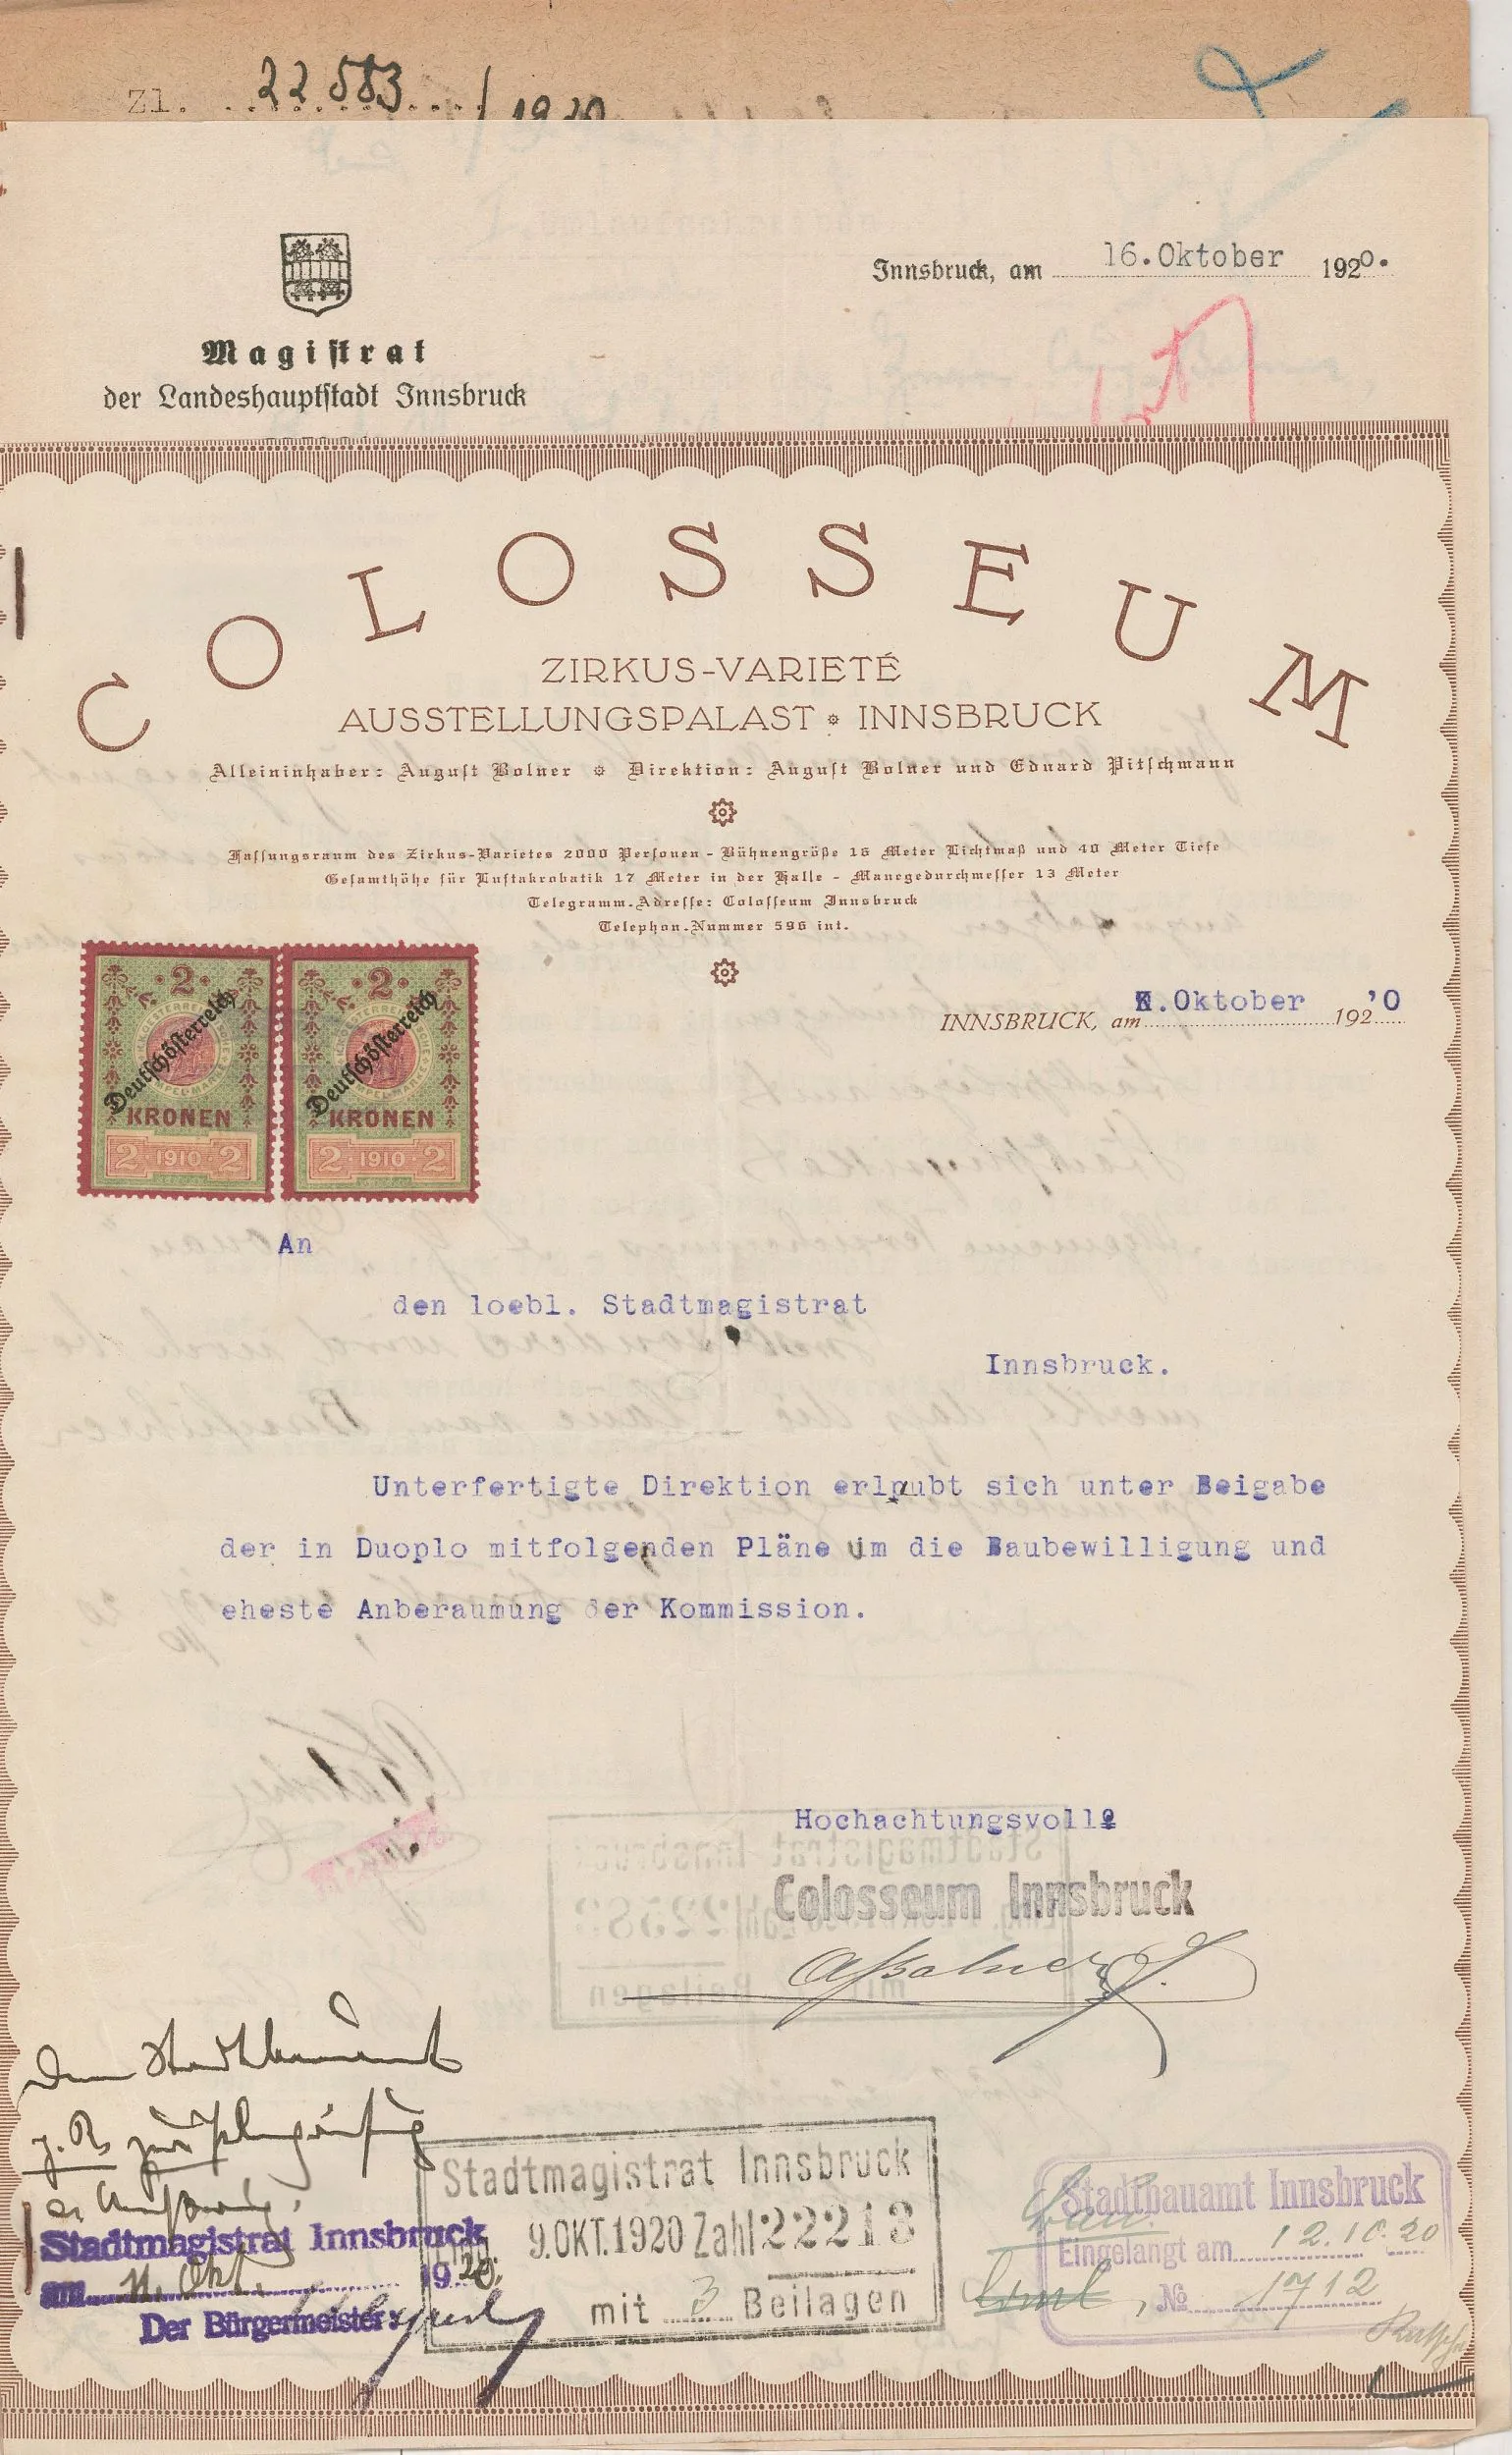 Zl. 22583/1920
Innsbruck, am 16.Oktober 1920.
Magistrat
der Landeshauptstadt Innsbruck
COLOSSEUM
ZIRKUS-VARIETÉ
AUSSTELLUNGSPALAST INNSBRUCK
Alleininhaber: August Bolner Direktion: August Bolner und Eduard Pitschmann
Fassungsraum des Zirkus-Varietes 2000 Personen - Bühnengröße 16 Meter Lichtmaß und 40 Meter Tiefe
Gesamthöhe für Luftakrobatik 17 Meter in der Halle - Manegedurchmesser 13 Meter
Telegramm-Adresse: Colosseum Innsbruck
Telephon-Nummer 596 int.
INNSBRUCK, am .Oktober 192'0
2 2
Deutschösterreich Deutschösterreich
KRONEN KRONEN
2 1910 2 2 1910 2
An
den loebl. Stadtmagistrat
Innsbruck.
Unterfertigte Direktion erlaubt sich unter Beigabe
der in Duoplo mitfolgenden Pläne um die Baubewilligung und
eheste Anberaumung der Kommission.
Hochachtungsvoll
Colosseum Innsbruck
ABolner
Dem Stadtbauamt
z. B.
Stadtmagistrat Innsbruck
am 11. Okt. 1920.
Der Bürgermeister:
Stadtmagistrat Innsbruck
Eing. 9.OKT.1920 Zahl 22213
mit 3 Beilagen
Stadtbauamt Innsbruck
Eingelangt am 12.10.20
№ 1712